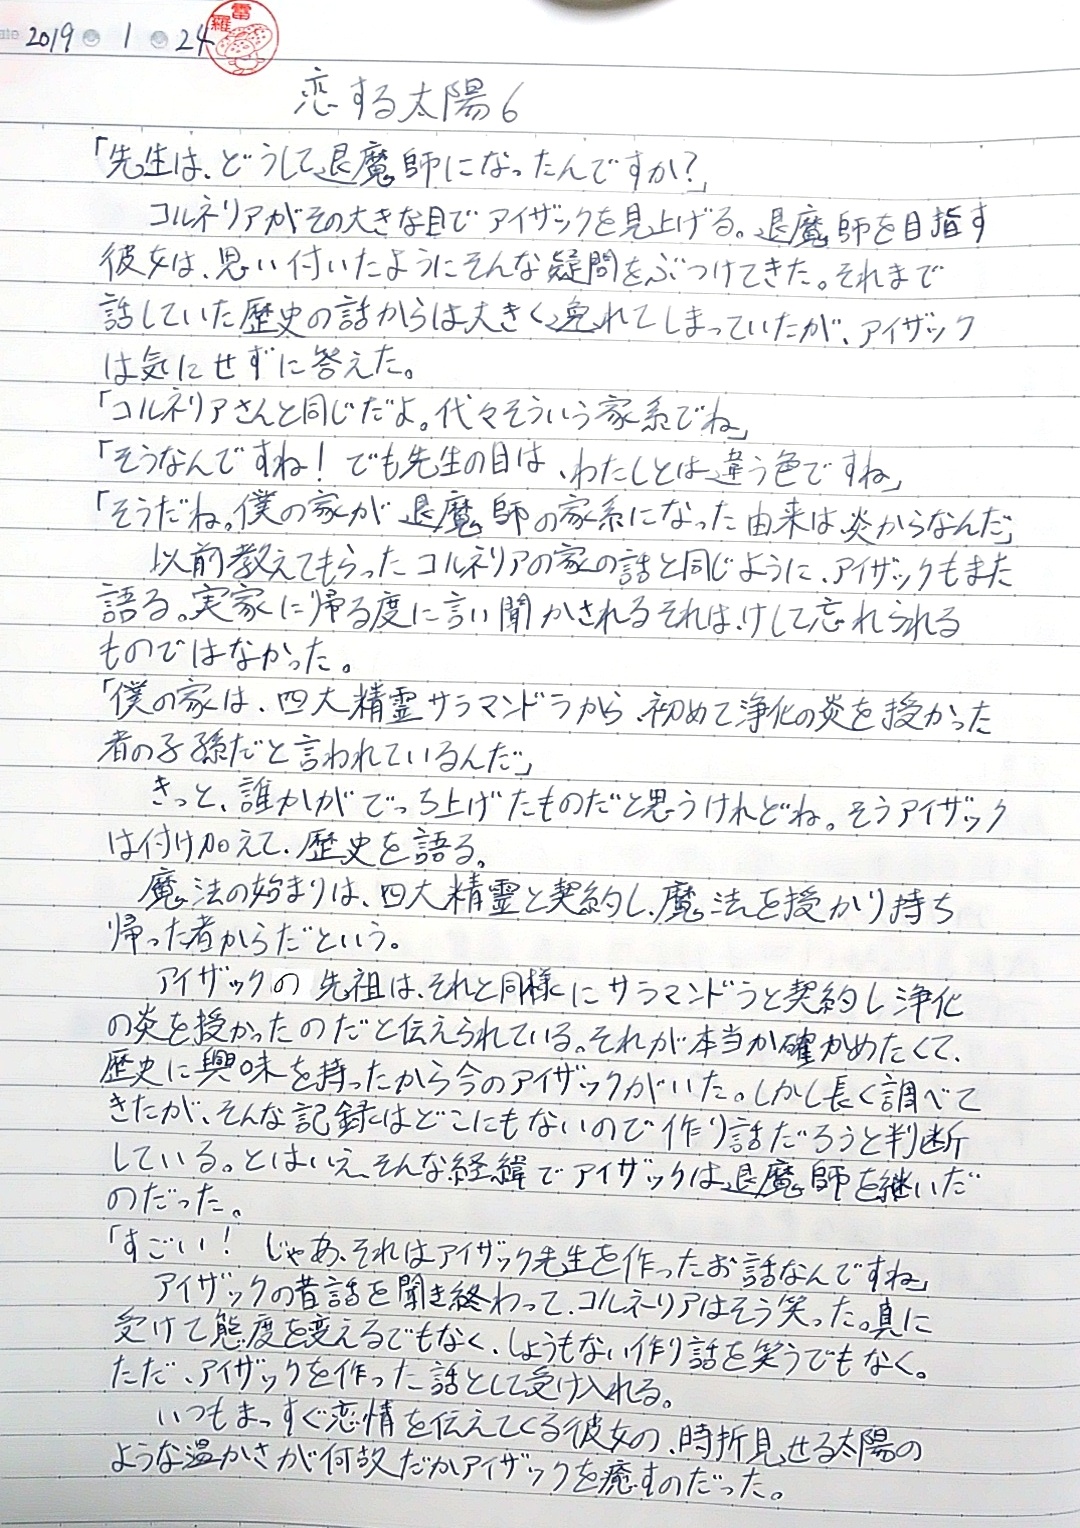 Date 2019 1 24
雷羅
恋する太陽6
「先生は、どうして退魔師になったんですか?」
コルネリアがその大きな目でアイザックを見上げる。退魔師を目指す
彼女は、思い付いたようにそんな疑問をぶつけてきた。それまで
話していた歴史の話からは大きく逸れてしまっていたが、アイザック
は気にせずに答えた。
「コルネリアさんと同じだよ。代々そういう家系でね」
「そうなんですね! でも先生の目は、わたしとは違う色ですね」
「そうだね。僕の家が退魔師の家系になった由来は炎からなんだ」
以前教えてもらったコルネリアの家の話と同じように、アイザックもまた
語る。実家に帰る度に言い聞かされるそれは、けして忘れられる
ものではなかった。
「僕の家は、四大精霊サラマンドラから、初めて浄化の炎を授かった
者の子孫だと言われているんだ」
きっと、誰かがでっち上げたものだと思うけれどね。そうアイザック
は付け加えて、歴史を語る。
魔法の始まりは、四大精霊と契約し、魔法を授かり持ち
帰った者からだという。
アイザックの先祖は、それと同様にサラマンドラと契約し浄化
の炎を授かったのだと伝えられている。それが本当か確かめたくて、
歴史に興味を持ったから今のアイザックがいた。しかし長く調べて
きたが、そんな記録はどこにもないので作り話だろうと判断
している。とはいえ、そんな経緯でアイザックは退魔師を継いだ
のだった。
「すごい! じゃあ、それはアイザック先生を作ったお話なんですね」
アイザックの昔話を聞き終わって、コルネリアはそう笑った。真に
受けて態度を変えるでもなく、しょうもない作り話を笑うでもなく。
ただ、アイザックを作った話として受け入れる。
いつもまっすぐ恋情を伝えてくる彼女の、時折見せる太陽の
ような温かさが何故だかアイザックを癒すのだった。